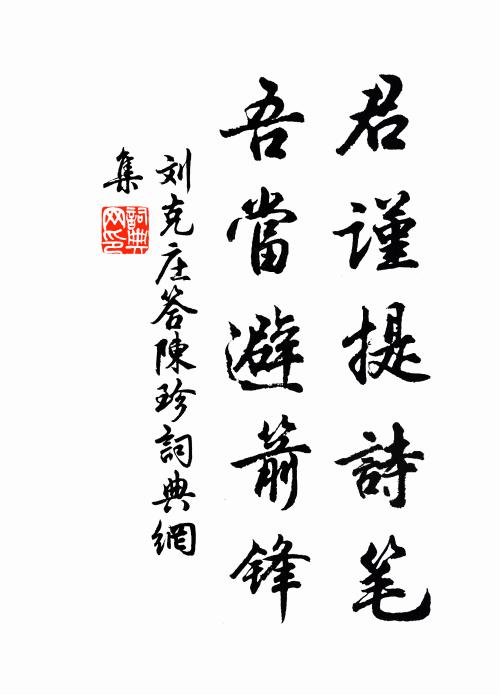 君谨提詩笔
吾當避箭锋
刘克庄答陳珍詞典網
集
詞典網印